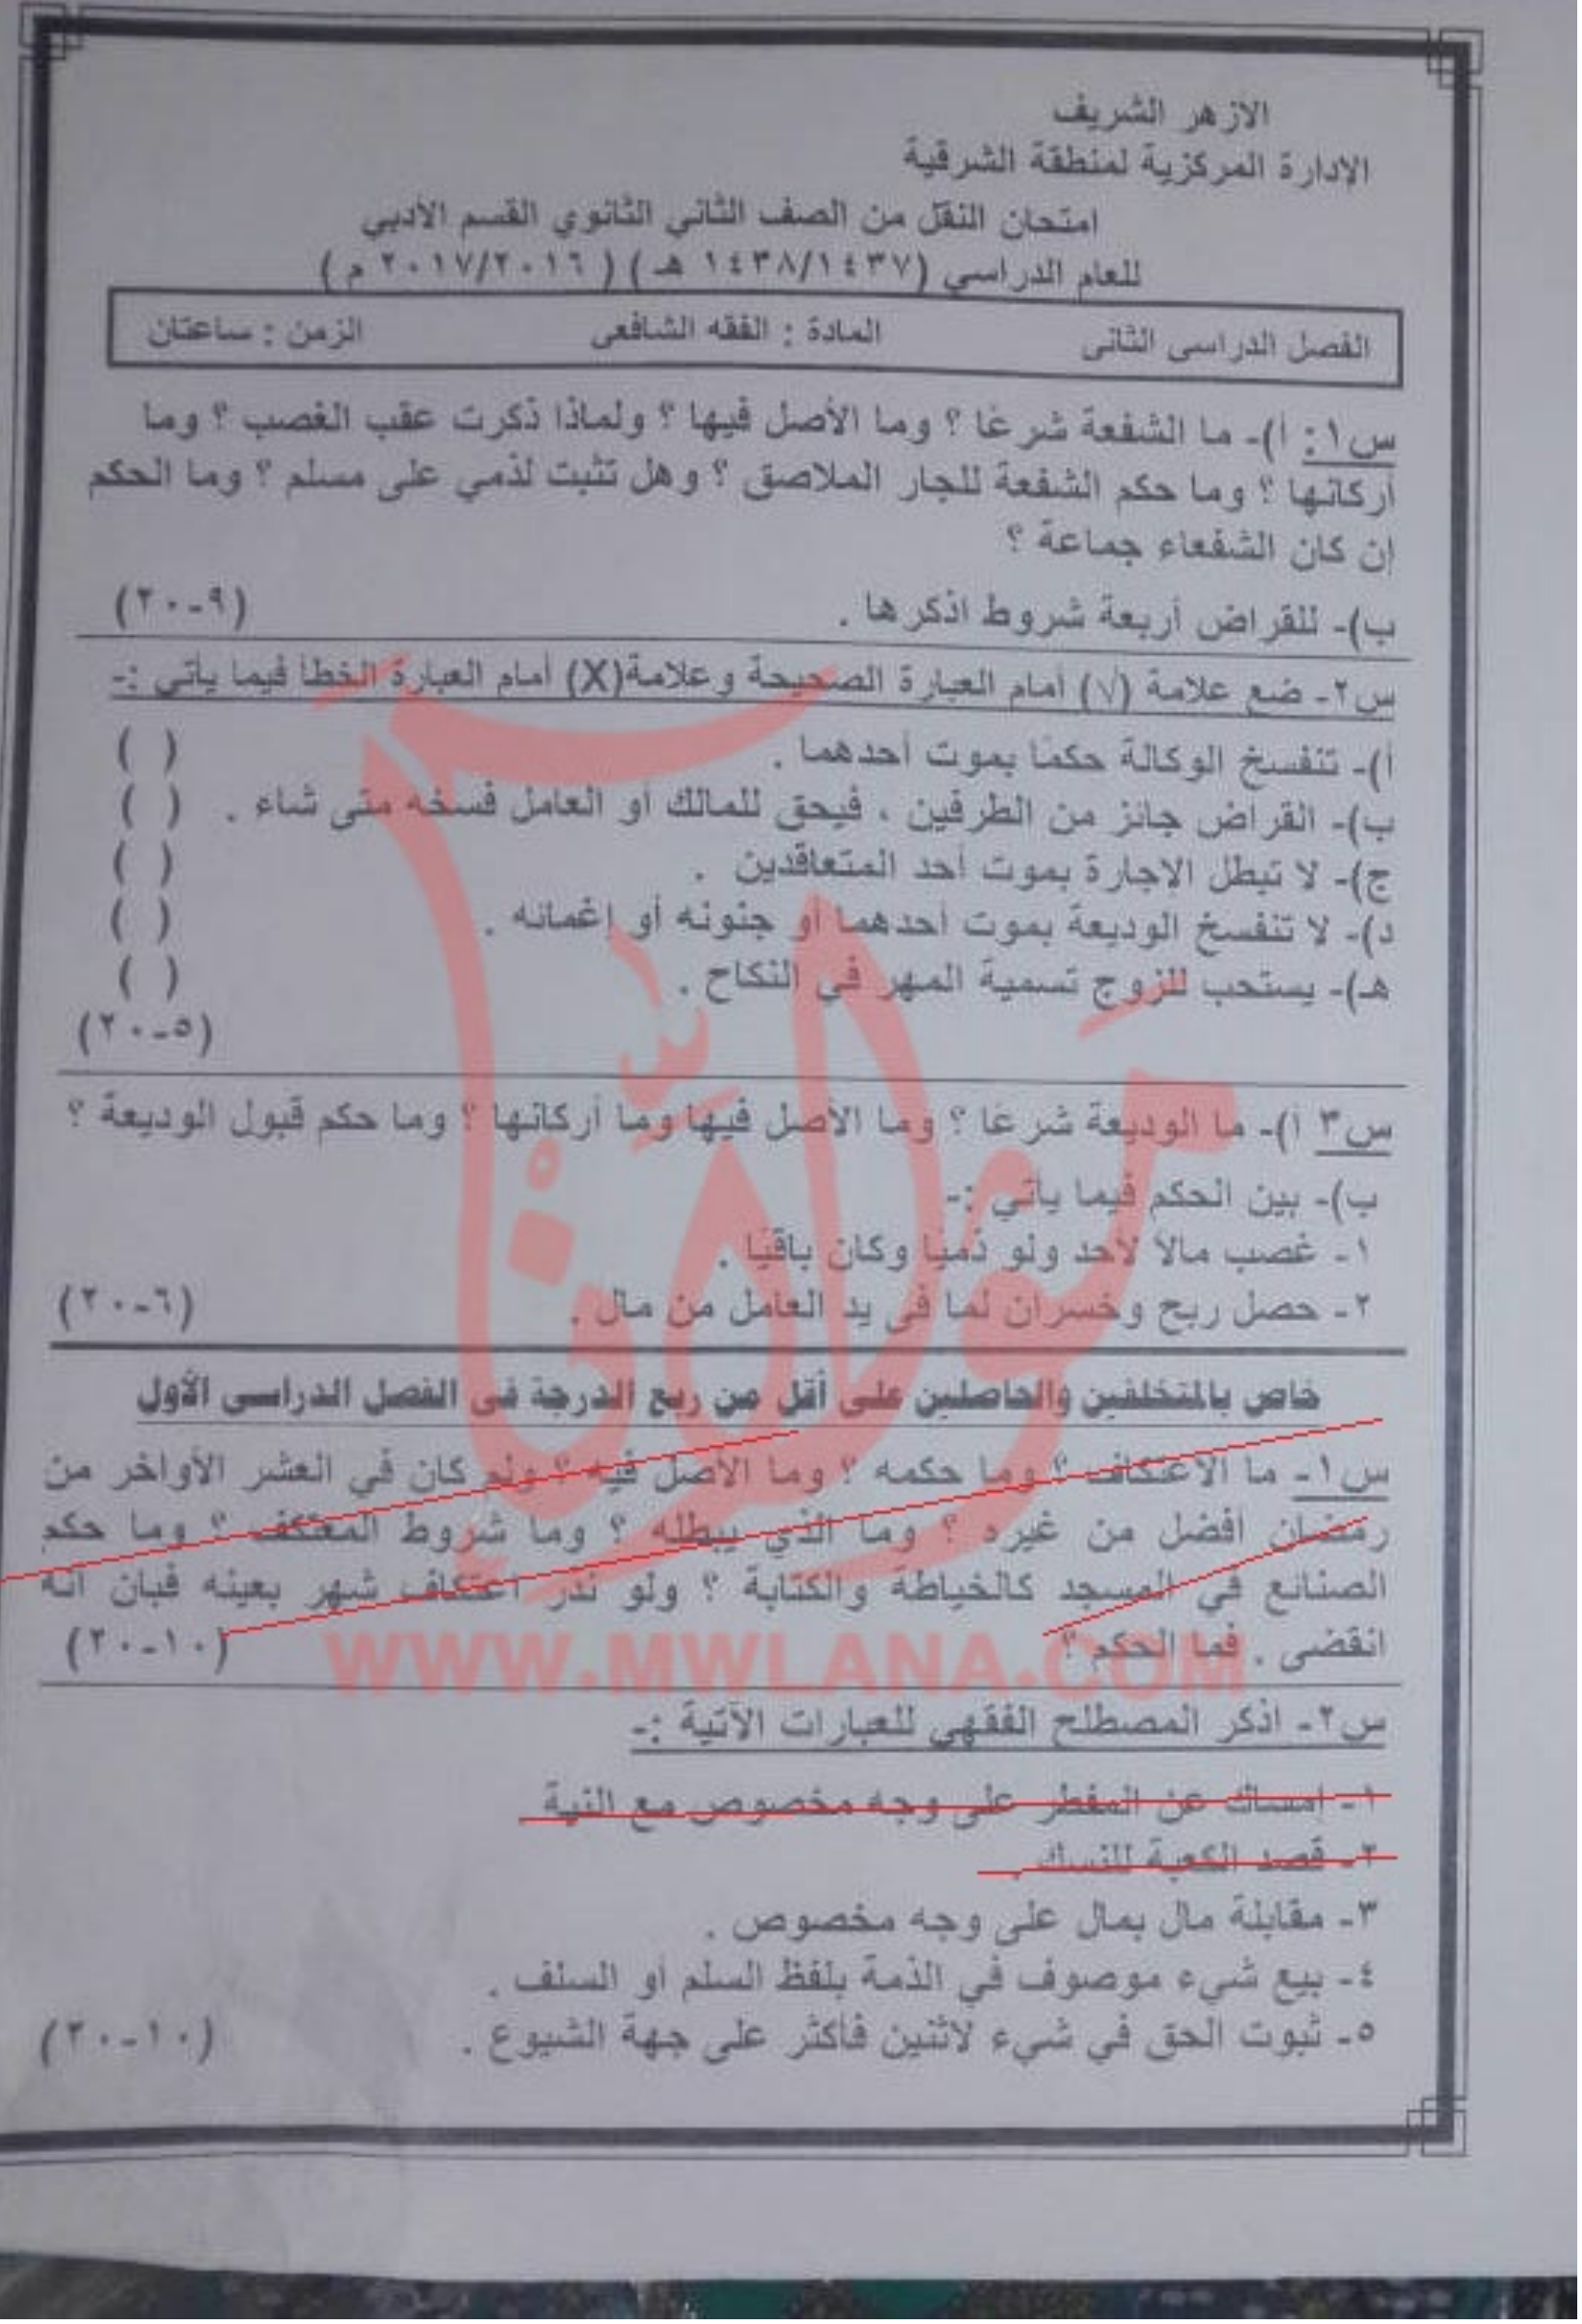 الازهر الشريف
الإدارة المركزية لمنطقة الشرقية
امتحان النقل من الصف الثاني الثانوي القسم الأدبي
للعام الدراسي (١٤٣٨/١٤٣٧ هـ) ( ٢٠١٧/٢٠١٦ م )
الفصل الدراسى الثانى المادة : الفقه الشافعى الزمن : ساعتان
س١: أ)- ما الشفعة شرعًا ؟ وما الأصل فيها ؟ ولماذا ذكرت عقب الغصب ؟ وما
أركانها ؟ وما حكم الشفعة للجار الملاصق ؟ وهل تثبت لذمي على مسلم ؟ وما الحكم
إن كان الشفعاء جماعة ؟
ب)- للقراض أربعة شروط اذكرها . (٩-٢٠)
س٢- ضع علامة (√) أمام العبارة الصحيحة وعلامة(X) أمام العبارة الخطأ فيما يأتي :-
أ)- تنفسخ الوكالة حكمًا بموت أحدهما . ( )
ب)- القراض جائز من الطرفين ، فيحق للمالك أو العامل فسخه متى شاء . ( )
ج)- لا تبطل الإجارة بموت أحد المتعاقدين . ( )
د)- لا تنفسخ الوديعة بموت أحدهما أو جنونه أو إغمائه . ( )
هـ)- يستحب للزوج تسمية المهر في النكاح . ( )
(٥-٢٠)
س٣ أ)- ما الوديعة شرعًا ؟ وما الأصل فيها وما أركانها ؟ وما حكم قبول الوديعة ؟
ب)- بين الحكم فيما يأتي :-
١- غصب مالاً لأحد ولو ذميًا وكان باقيًا .
٢- حصل ربح وخسران لما فى يد العامل من مال . (٦-٢٠)
خاص بالمتخلفين والحاصلين على أقل من ربع الدرجة فى الفصل الدراسى الأول
س١- ما الاعتكاف ؟ وما حكمه ؟ وما الأصل فيه ؟ ولم كان في العشر الأواخر من
رمضان أفضل من غيره ؟ وما الذي يبطله ؟ وما شروط المعتكف ؟ وما حكم
الصنائع في المسجد كالخياطة والكتابة ؟ ولو نذر اعتكاف شهر بعينه فبان أنه
انقضى . فما الحكم ؟ (١٠-٢٠)
س٢- اذكر المصطلح الفقهي للعبارات الآتية :-
١- إمساك عن المفطر على وجه مخصوص مع النية
٢- قصد الكعبة للنسك .
٣- مقابلة مال بمال على وجه مخصوص .
٤- بيع شيء موصوف في الذمة بلفظ السلم أو السلف .
٥- ثبوت الحق في شيء لاثنين فأكثر على جهة الشيوع . (١٠-٢٠)
مولانا
WWW.MWLANA.COM